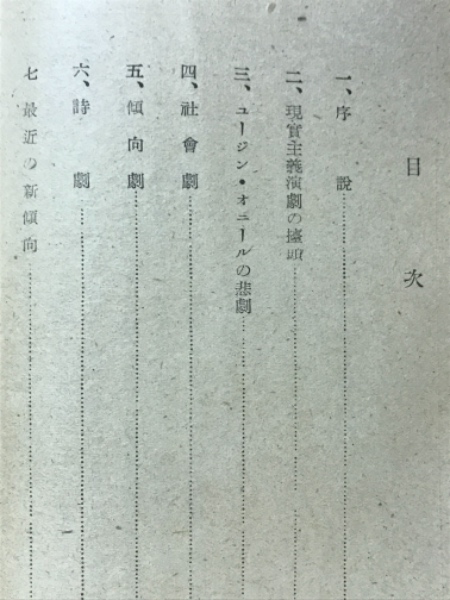 目次
一、序説
二、現實主義演劇の擡頭
三、ユージン・オニールの悲劇
四、社會劇
五、傾向劇
六、詩劇
七 最近の新傾向